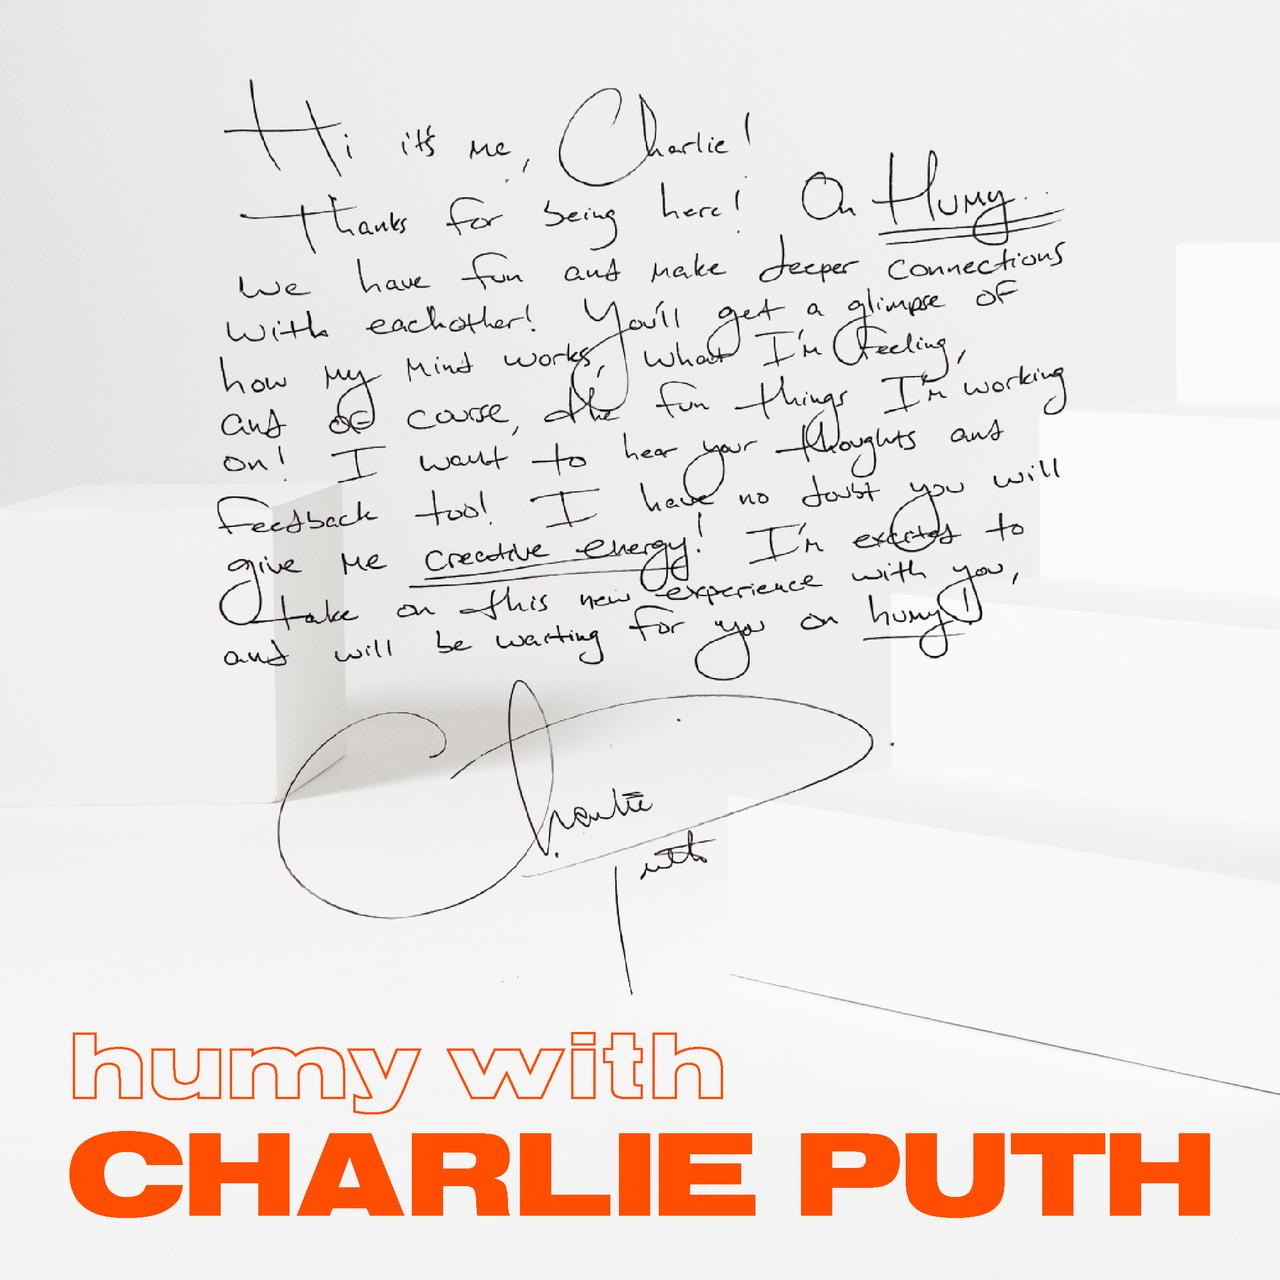 Hi it's me, Charlie!
Thanks for being here! On Humy
we have fun and make deeper connections
with eachother! You'll get a glimpse of
how my mind works, what I'm feeling,
and of course, the fun things I'm working
on! I want to hear your thoughts and
feedback too! I have no doubt you will
give me creative energy! I'm excited to
take on this new experience with you,
and will be waiting for you on humy!
Charlie
Puth
humy with
CHARLIE PUTH